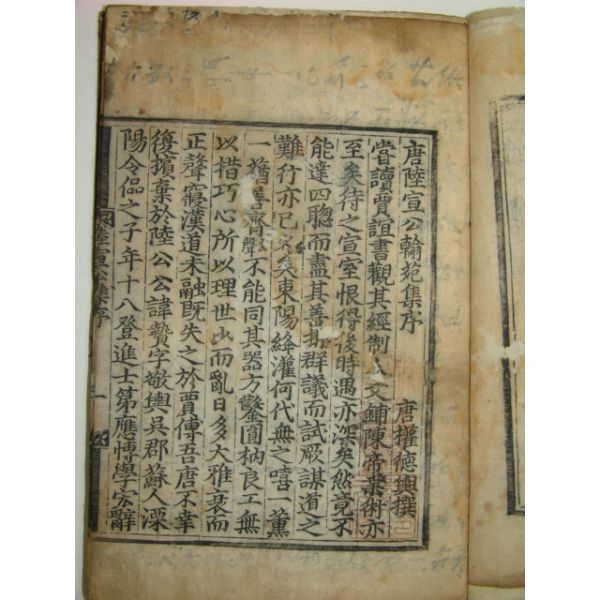 唐陸宣公翰苑集序
唐權德輿撰
嘗讀賈誼書觀其經制人文鋪陳帝業術亦
至矣待之宣室恨得後時遇亦深矣然竟不
能達四聦而盡其善排群議而試厥謀道之
難行亦已久矣東陽絳灌何代無之嘻一薰
一蕕善齊不能同其器方鑿圓枘良工無
以措巧心所以理世少而亂日多大雅衰而
正聲寢漢道未融旣失之於賈傅吾唐不幸
復擯棄於陸公公諱贄字敬輿吳郡蘇人溧
陽令偘之子年十八登進士第應愽學宏辭
陸宣公集序 一